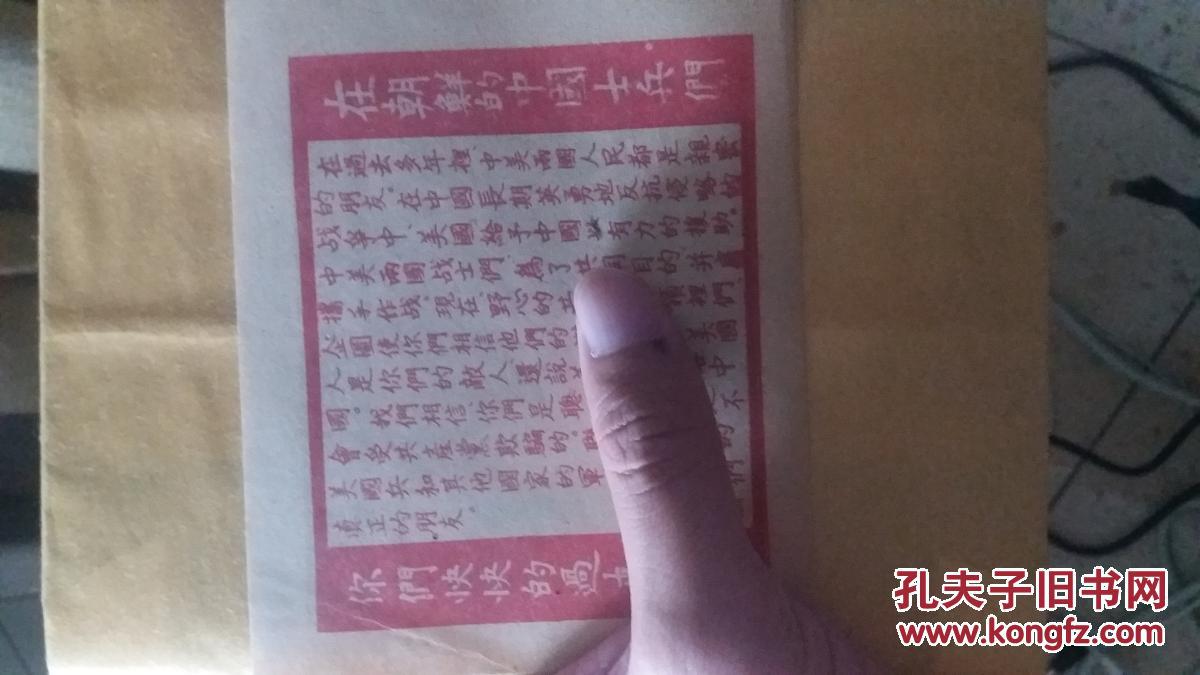 在朝鮮的中國士兵們
在過去多年裡、中美兩國人民都是親密
的朋友。在中國長期英勇地反抗侵略的
战爭中、美國給予中國以有力的援助。
中美兩國战士們、為了共同目的、并肩
攜手作战。現在、野心的共 裡們
企圖使你們相信他們的 美國
人是你們的敵人、還說 中
國。我們相信、你們是聰 的、不
會受共產黨欺騙的。聯 們
美國兵和其他國家的軍
真正的朋友。
你們快快的過
孔夫子旧书网
www.kongfz.com